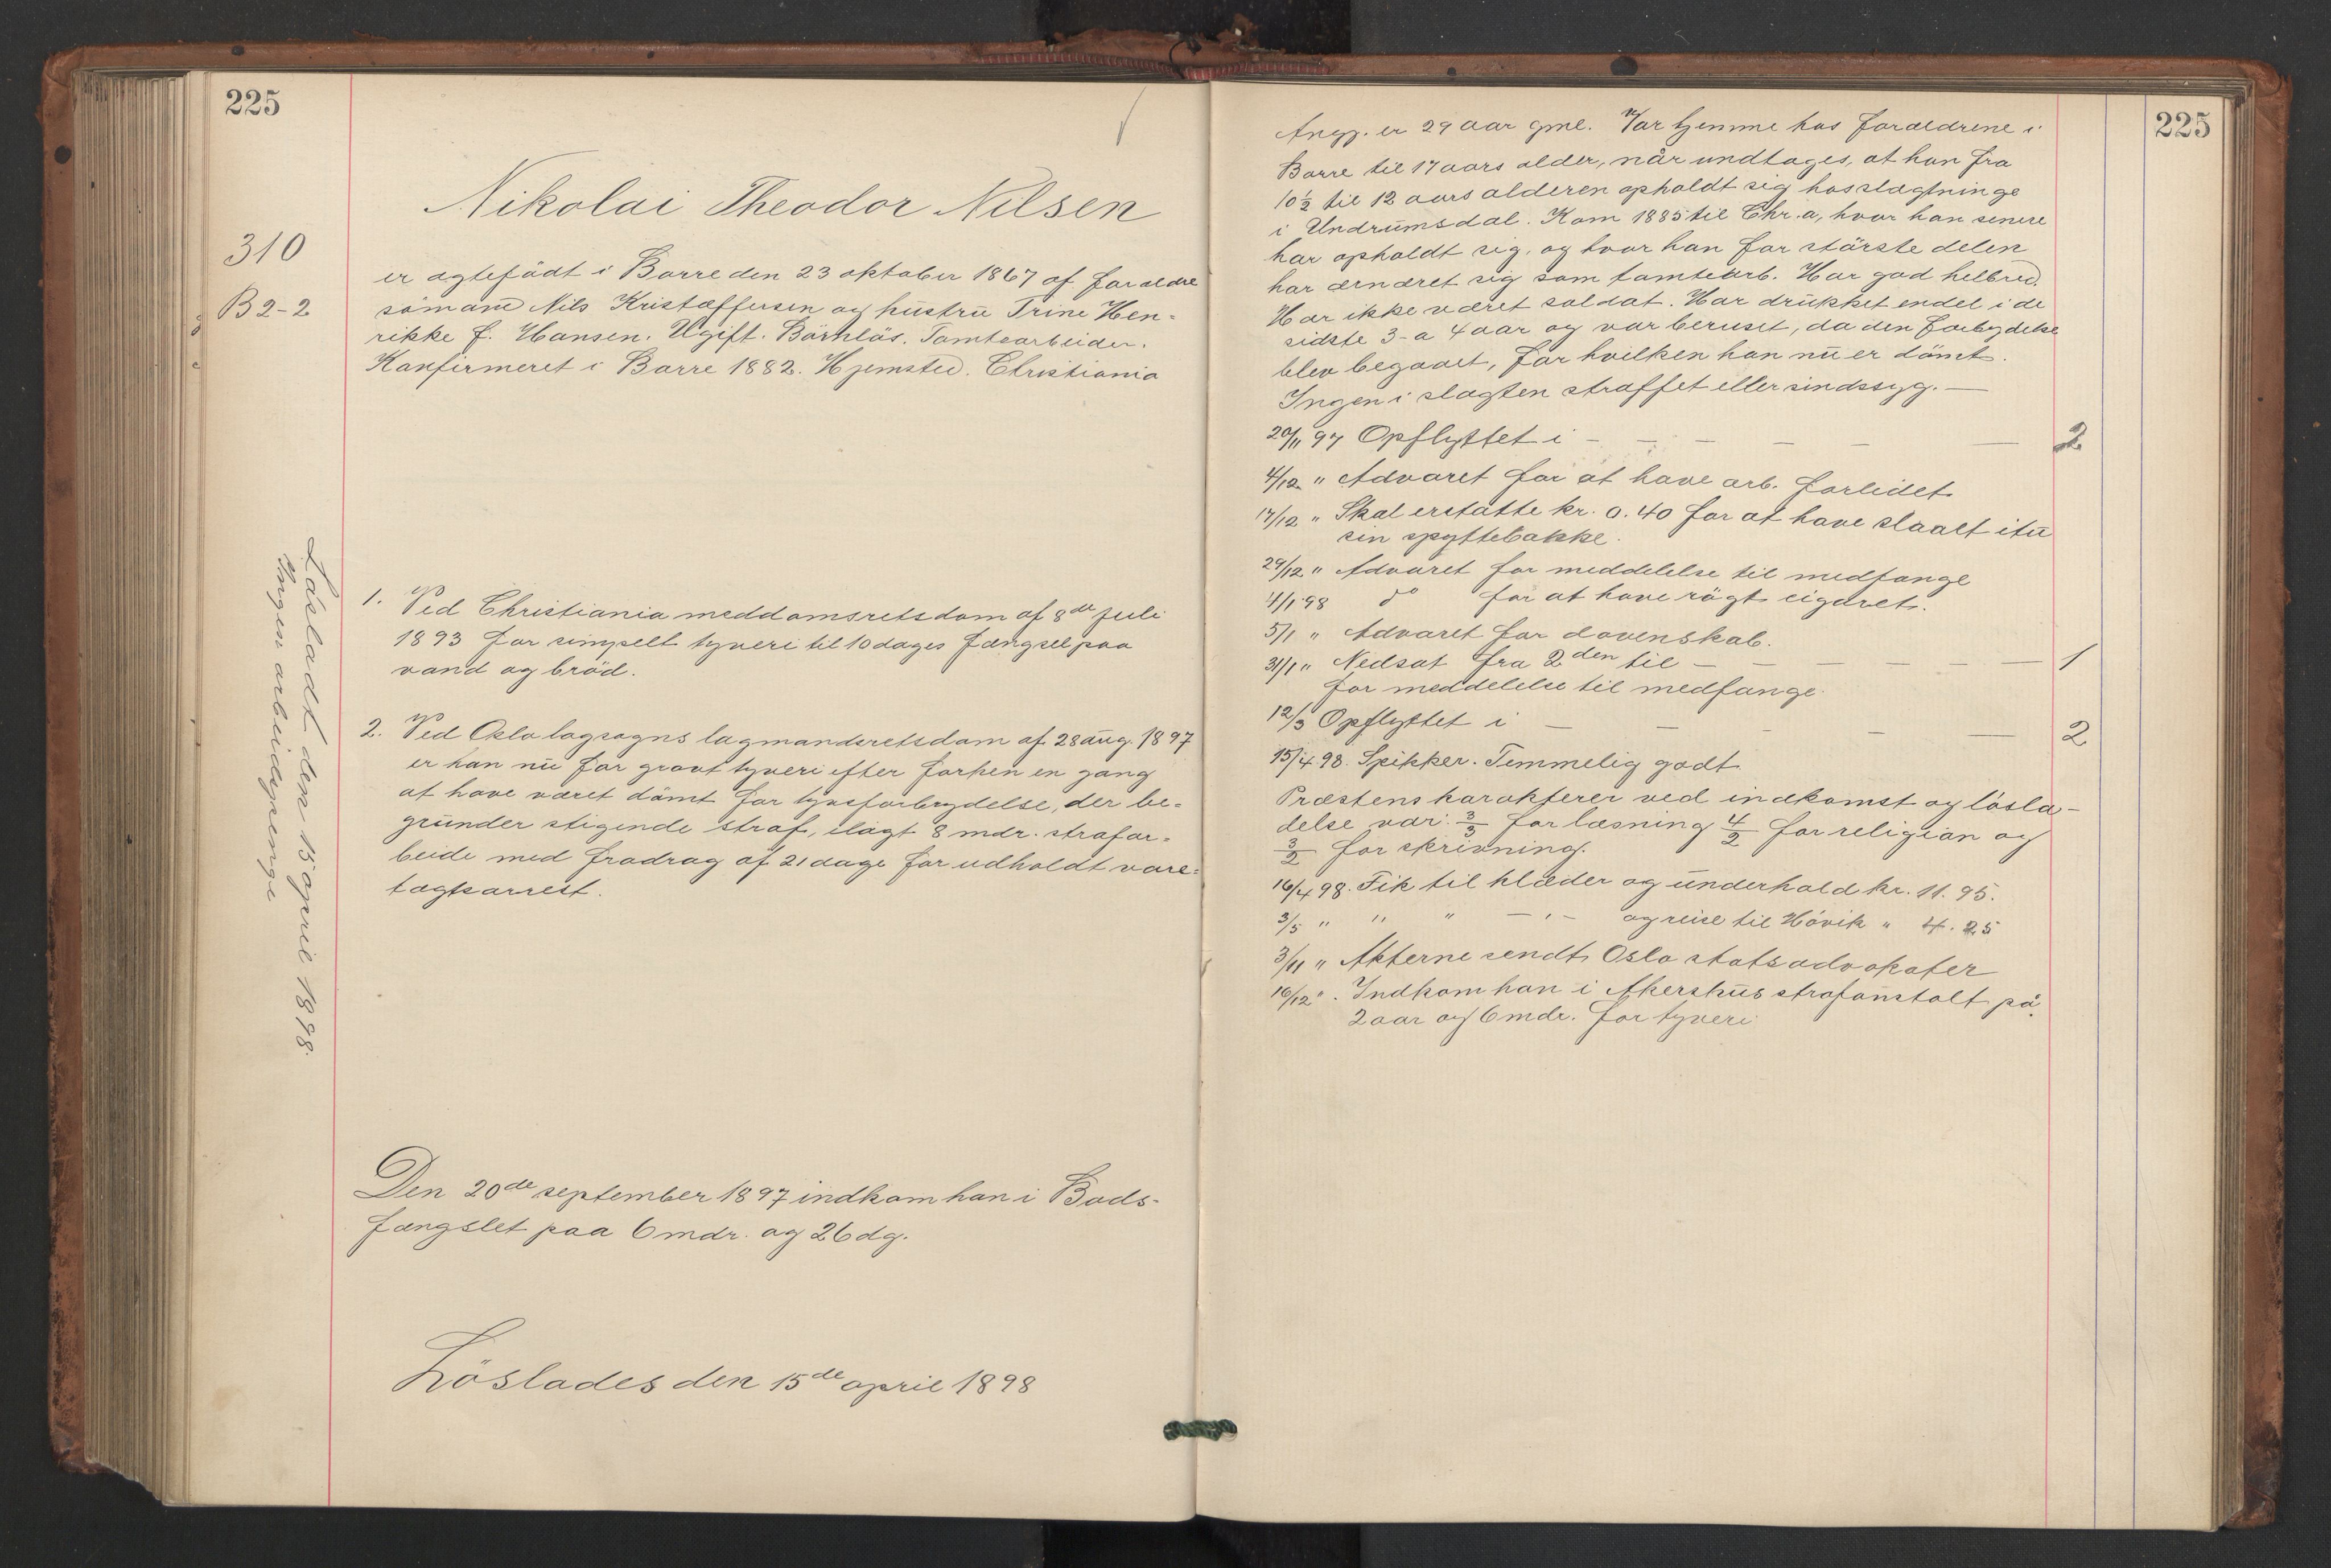 225
310
B 2-2
Nikolai Theodor Nilsen
er ægtefödt i Borre den 23 oktober 1867 af forældre
sömand Nils Kristoffersen og hustru Trine Hen-
rikke f. Hansen. Ugift. Börnlös. Tomtearbeider.
Konfirmeret i Borre 1882. Hjemsted. Christiania
1. Ved Christiania meddomsretsdom af 8de juli
1893 for simpelt tyveri til 10 dages fængsel paa
vand og bröd.
2. Ved Oslo lagsogns lagmandsretsdom af 28 aug. 1897
er han nu for grovt tyveri efter forhen en gang
at have været dömt for tyvsforbrydelse, der be-
grunder stigende straf, ilagt 8 mdr. strafar-
beide med fradrag af 21 dage for udholdt vare-
tægtsarrest.
Den 20de september 1897 indkom han i Bods-
fængslet paa 6 mdr. og 26 dg.
Löslades den 15de april 1898
Lösladt den 15 april 1898.
Ingen arbeidspenge
225
Angj. er 29 aar gml. Var hjemme hos forældrene i
Borre til 17 aars alder, når undtages, at han fra
10½ til 12 aars alderen opholdt sig hos slægtninge
i Undrumsdal. Kom 1885 til Chr.a, hvor han senere
har opholdt sig, og hvor han for störste delen
har ernæret sig som tomtearb. Har god helbred.
Har ikke været soldat. Har drukket endel i de
sidste 3-a 4 aar og var beruset, da den forbrydelse
blev begaaet, for hvilken han nu er dömt.
Ingen i slægten straffet eller sindssyg. —
20/11 97 Opflyttet i - — — — — — 2
4/12 " Advaret for at have arb. forledet
17/12 " Skal erstatte kr. 0.40 for at have slaaet itu
sin spyttebakke.
29/12 " Advaret for meddelelse til medfange
4/1 98 do for at have rögt cigaret.
5/1 " Advaret for dovenskab.
31/1 " Nedsat fra 2den til — — — — — — 1
for meddelelse til medfange.
12/3 Opflyttet i — — — — — 2
15/4 98. Spikker. Temmelig godt
Præstens karakterer ved indkomst og lösla-
delse var: 3/3 for læsning 4/2 for religion og
3/2 for skrivning.
16/4 98. Fik til klæder og underhold kr. 11.95.
3/5 " " " — " — og reise til Hövik " 4.25
3/11 " Akterne sendt Oslo statsadvokater
16/12 " . Indkom han i Akershus strafanstalt på
2 aar og 6 mdr. for tyveri